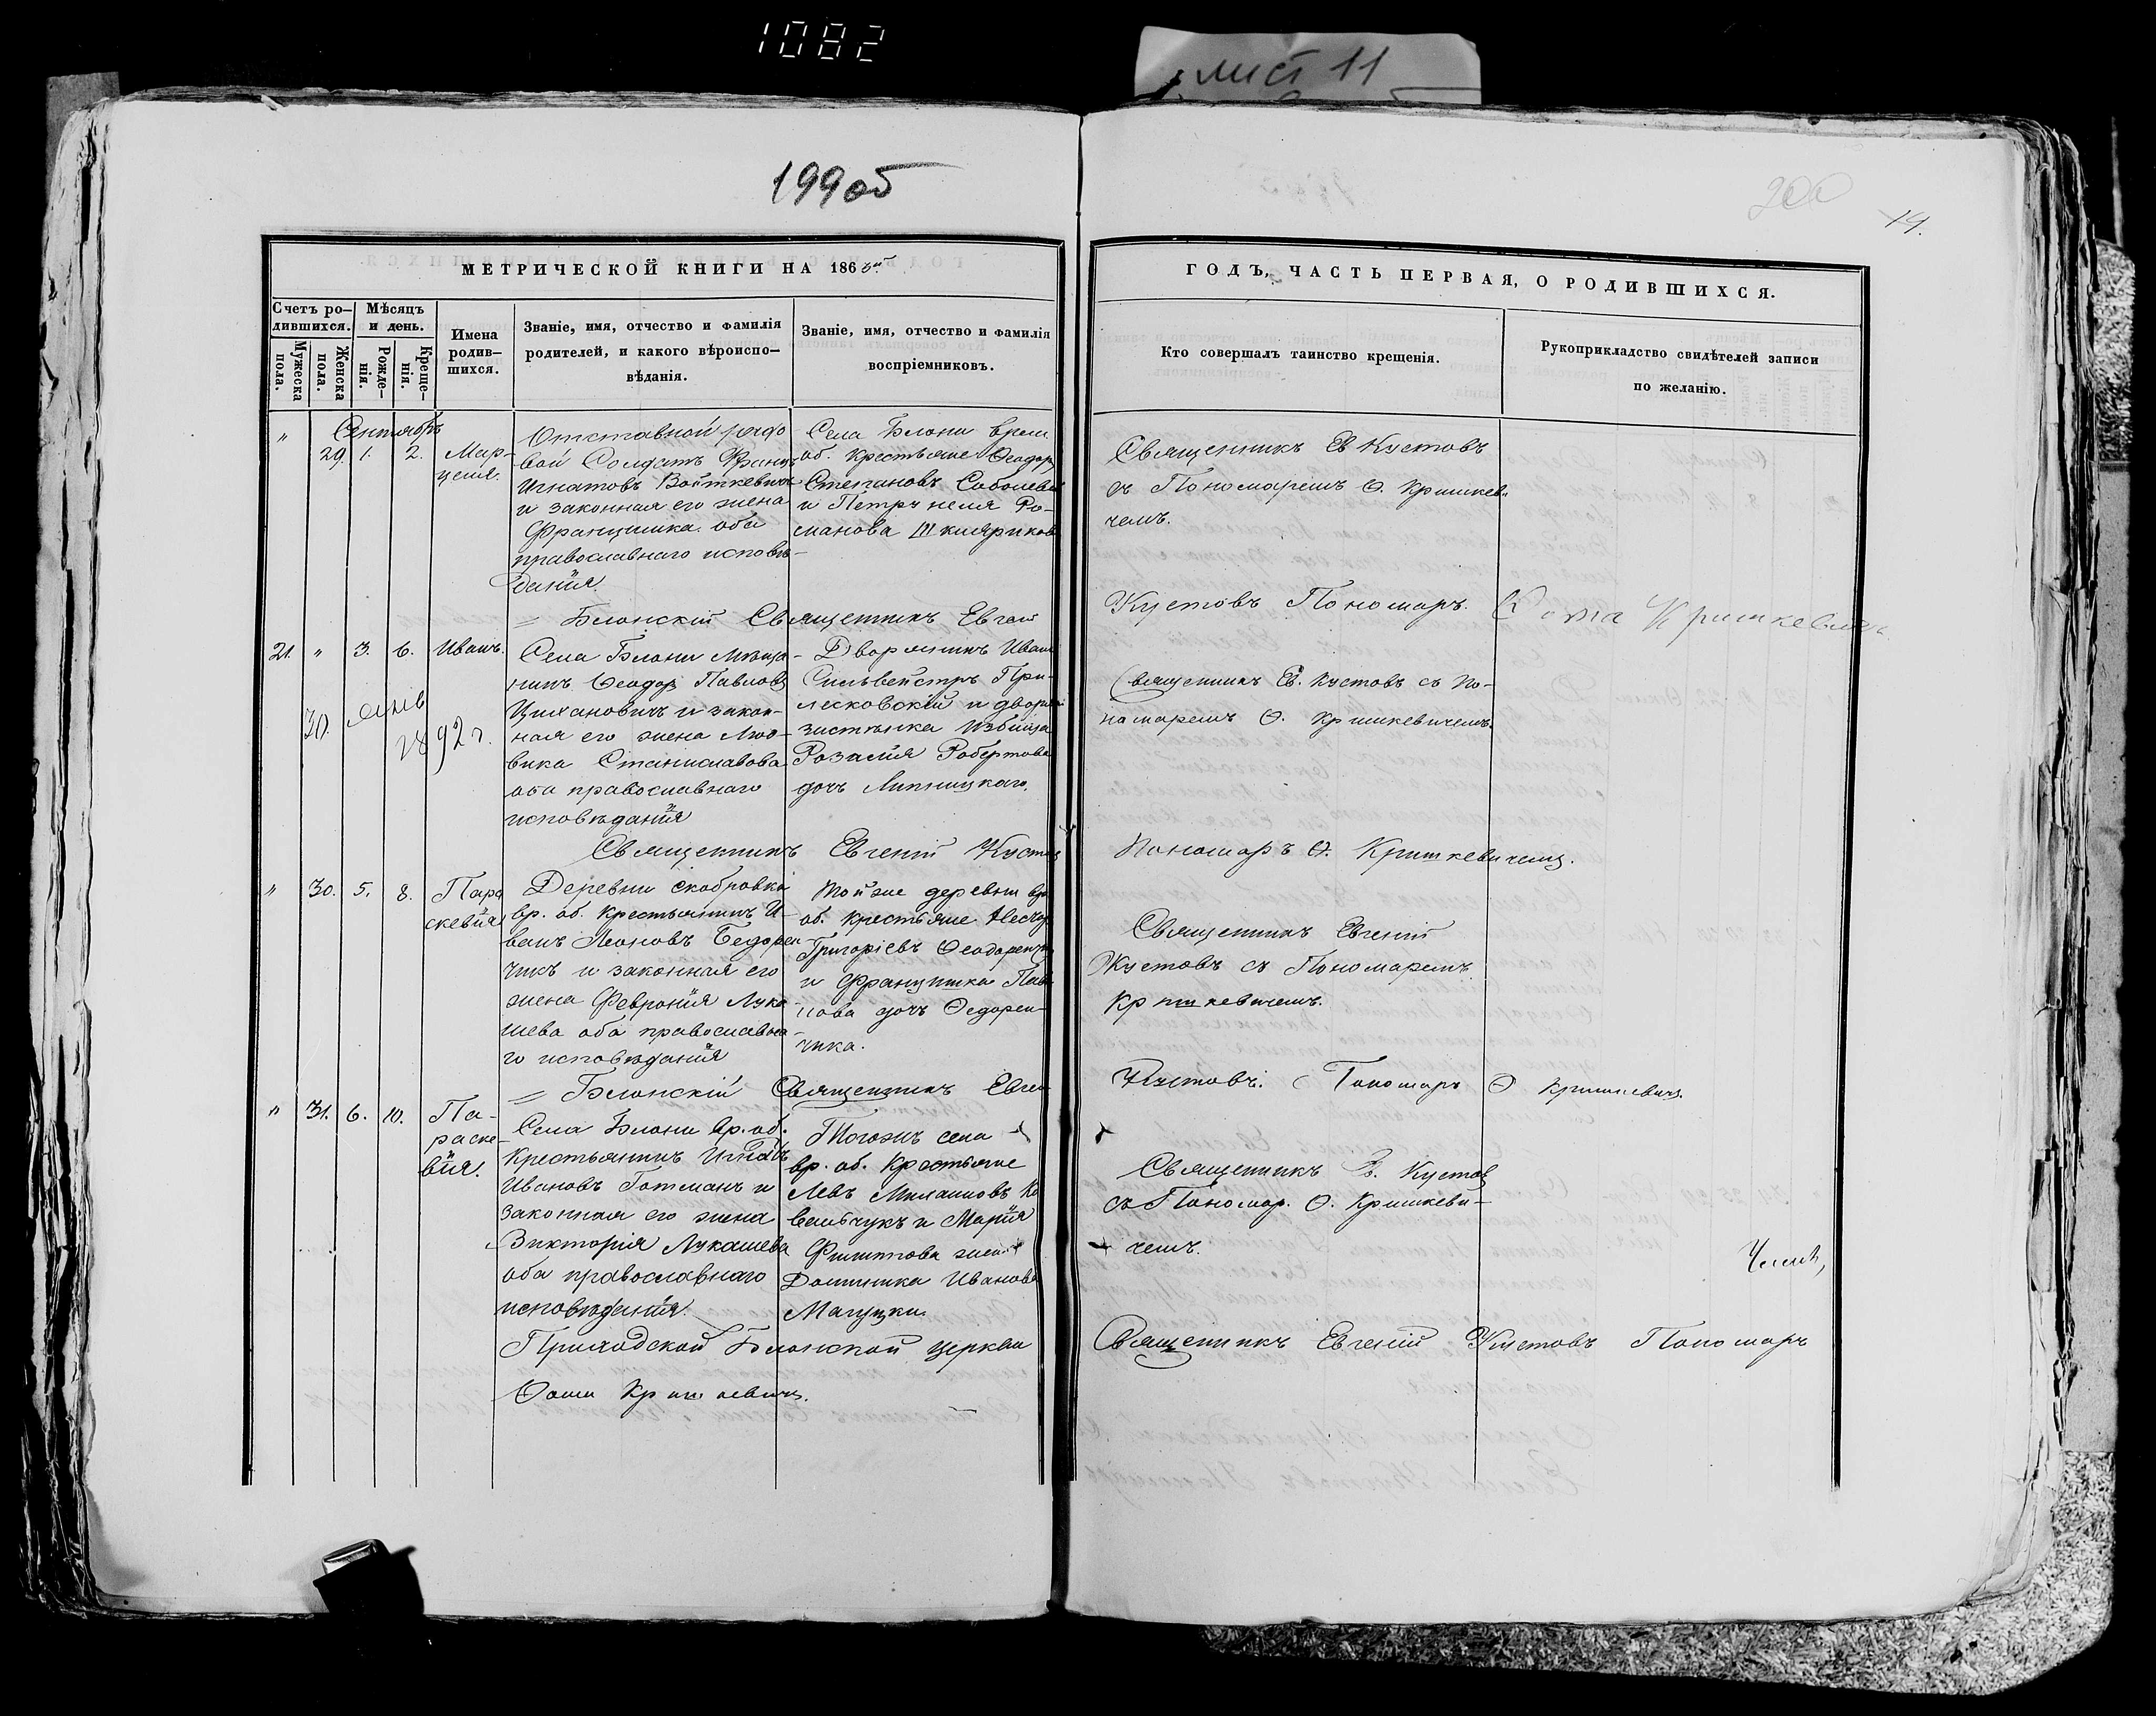 1082
лист 11
199 об
200
19.
МЕТРИЧЕСКОЙ КНИГИ НА 186
ГОДЪ, ЧАСТЬ ПЕРВАЯ, О РОДИВШИХСЯ.
Счетъ ро-
дившихся.
Мужеска
пола.
Женска
пола.
Мѣсяцъ
и день.
Рожде-
нія.
Креще-
нія.
Имена
родив-
шихся.
Званіе, имя, отчество и фамилія
родителей, и какого вѣроиспо-
вѣданія.
Званіе, имя, отчество и фамилія
воспріемниковъ.
Кто совершалъ таинство крещенія.
Рукоприкладство свидѣтелей записи
по желанію.
Сентябрь
" 29. 1. 2. Мар-
целя.
Отставной рядо
вой Солдатъ Францъ
Игнатовъ Войткевичъ
и законная его жена
Францишка оба
православнаго исповѣ-
данія.
Села Блони врем.
об. крестьяне Ѳеодоръ
Степановъ Соболев
и Петрунеля Ро-
манова Шкляриков
Священникъ Ев Кустовъ
съ Пономаремъ Ѳ. Кришкеви
чемъ.
Блонскій Священникъ Евгеній
Кустовъ Пономарь. Кришкевичъ
21. " 3. 6. Иванъ.
30. янв
1892 г.
Села Блони мѣща-
нинъ Ѳеодоръ Павловъ
Цихановичъ и закон-
ная его жена Люд-
вика Станиславова
оба православнаго
исповѣданія
Дворянинъ Иванъ
Сильвестръ При-
лесковскій и дворян
Избица
Розалія Робертова
дочь Липницкаго.
Священникъ Ев. Кустовъ съ По-
намаремъ Ѳ. Кришкевичемъ.
Священникъ Евгеній Кустовъ
Пономаръ Ѳ. Кришкевичемъ.
" 30. 5. 8. Пара
скевія
Деревни Скобровка
вр. об. крестьянинъ И-
ванъ Леоновъ Ѳедорен
чикъ и законная его
жена Февронія Лука-
шева оба православна
го исповѣданія
Той же деревни вр.
об. крестьяне
Григоріевъ Ѳеодоренчик
и Францишка Пав-
лова дочь Ѳедорен-
чика.
Священникъ Евгеній
Кустовъ съ Пономаремъ
Кришкевичемъ.
Блонскій Священникъ Евген
Кустовъ. Пономарь Ѳ Кришкевичъ.
" 31. 6. 10. Па-
раске-
вія.
Села Блони вр. об.
Крестьянинъ Игнатъ
Ивановъ Готманъ и
законная его жена
Викторія Лукашева
оба православнаго
исповѣданія.
Тогожъ села
вр. об. Крестьяне
Левъ Михайловъ Ко
вальчукъ и Марія
Филипова жена
Доминика Иванова
Мацуцки
Священникъ Е. Кустовъ
съ Пономар. Ѳ. Кришкеви-
чемъ.
Приходской Блонской церкви
Священникъ Евгеній Кустовъ Пономарь
Ѳома Кришкевичъ.